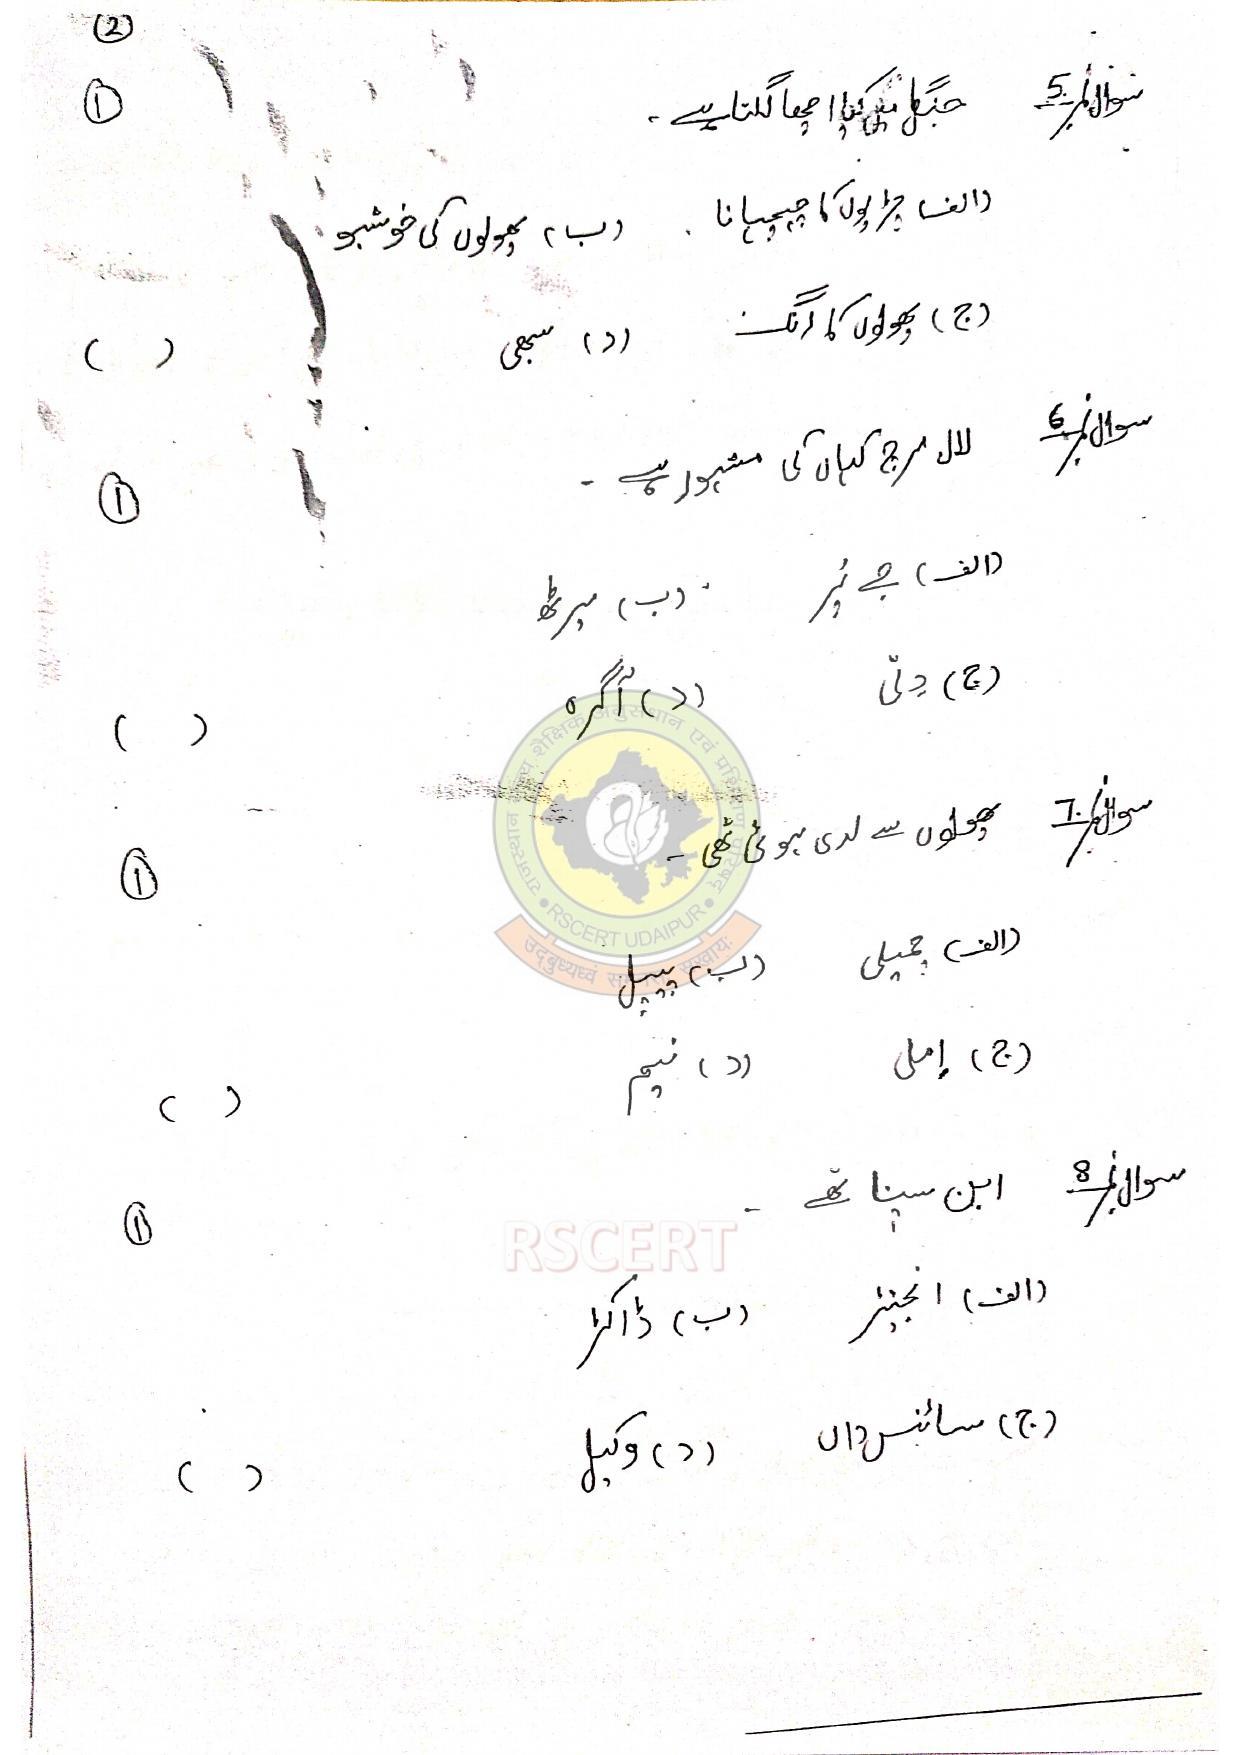 (2)
سوال نمبر 5. جنگل میں کیا اچھا لگتا ہے۔ (1)
(الف) چڑیوں کا چہچہانا (ب) پھولوں کی خوشبو
(ج) پھولوں کا رنگ (د) سبھی ( )
سوال نمبر 6 لال مرچ کہاں کی مشہور ہے۔ (1)
(الف) جے پُر (ب) میرٹھ
(ج) دِلّی (د) آگرہ ( )
سوال نمبر 7. پھولوں سے لدی ہوئی تھی۔ (1)
(الف) چمیلی (ب) پیپل
(ج) اِملی (د) نیم ( )
سوال نمبر 8 ابن سینا تھے۔ (1)
(الف) انجینئر (ب) ڈاکٹر
(ج) سائنس داں (د) وکیل ( )
RSCERT UDAIPUR
RSCERT